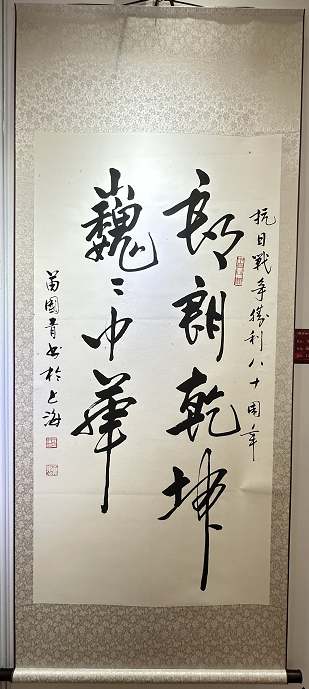 抗日戰爭勝利八十周年
朗朗乾坤
巍〻中華
苗國青書於上海